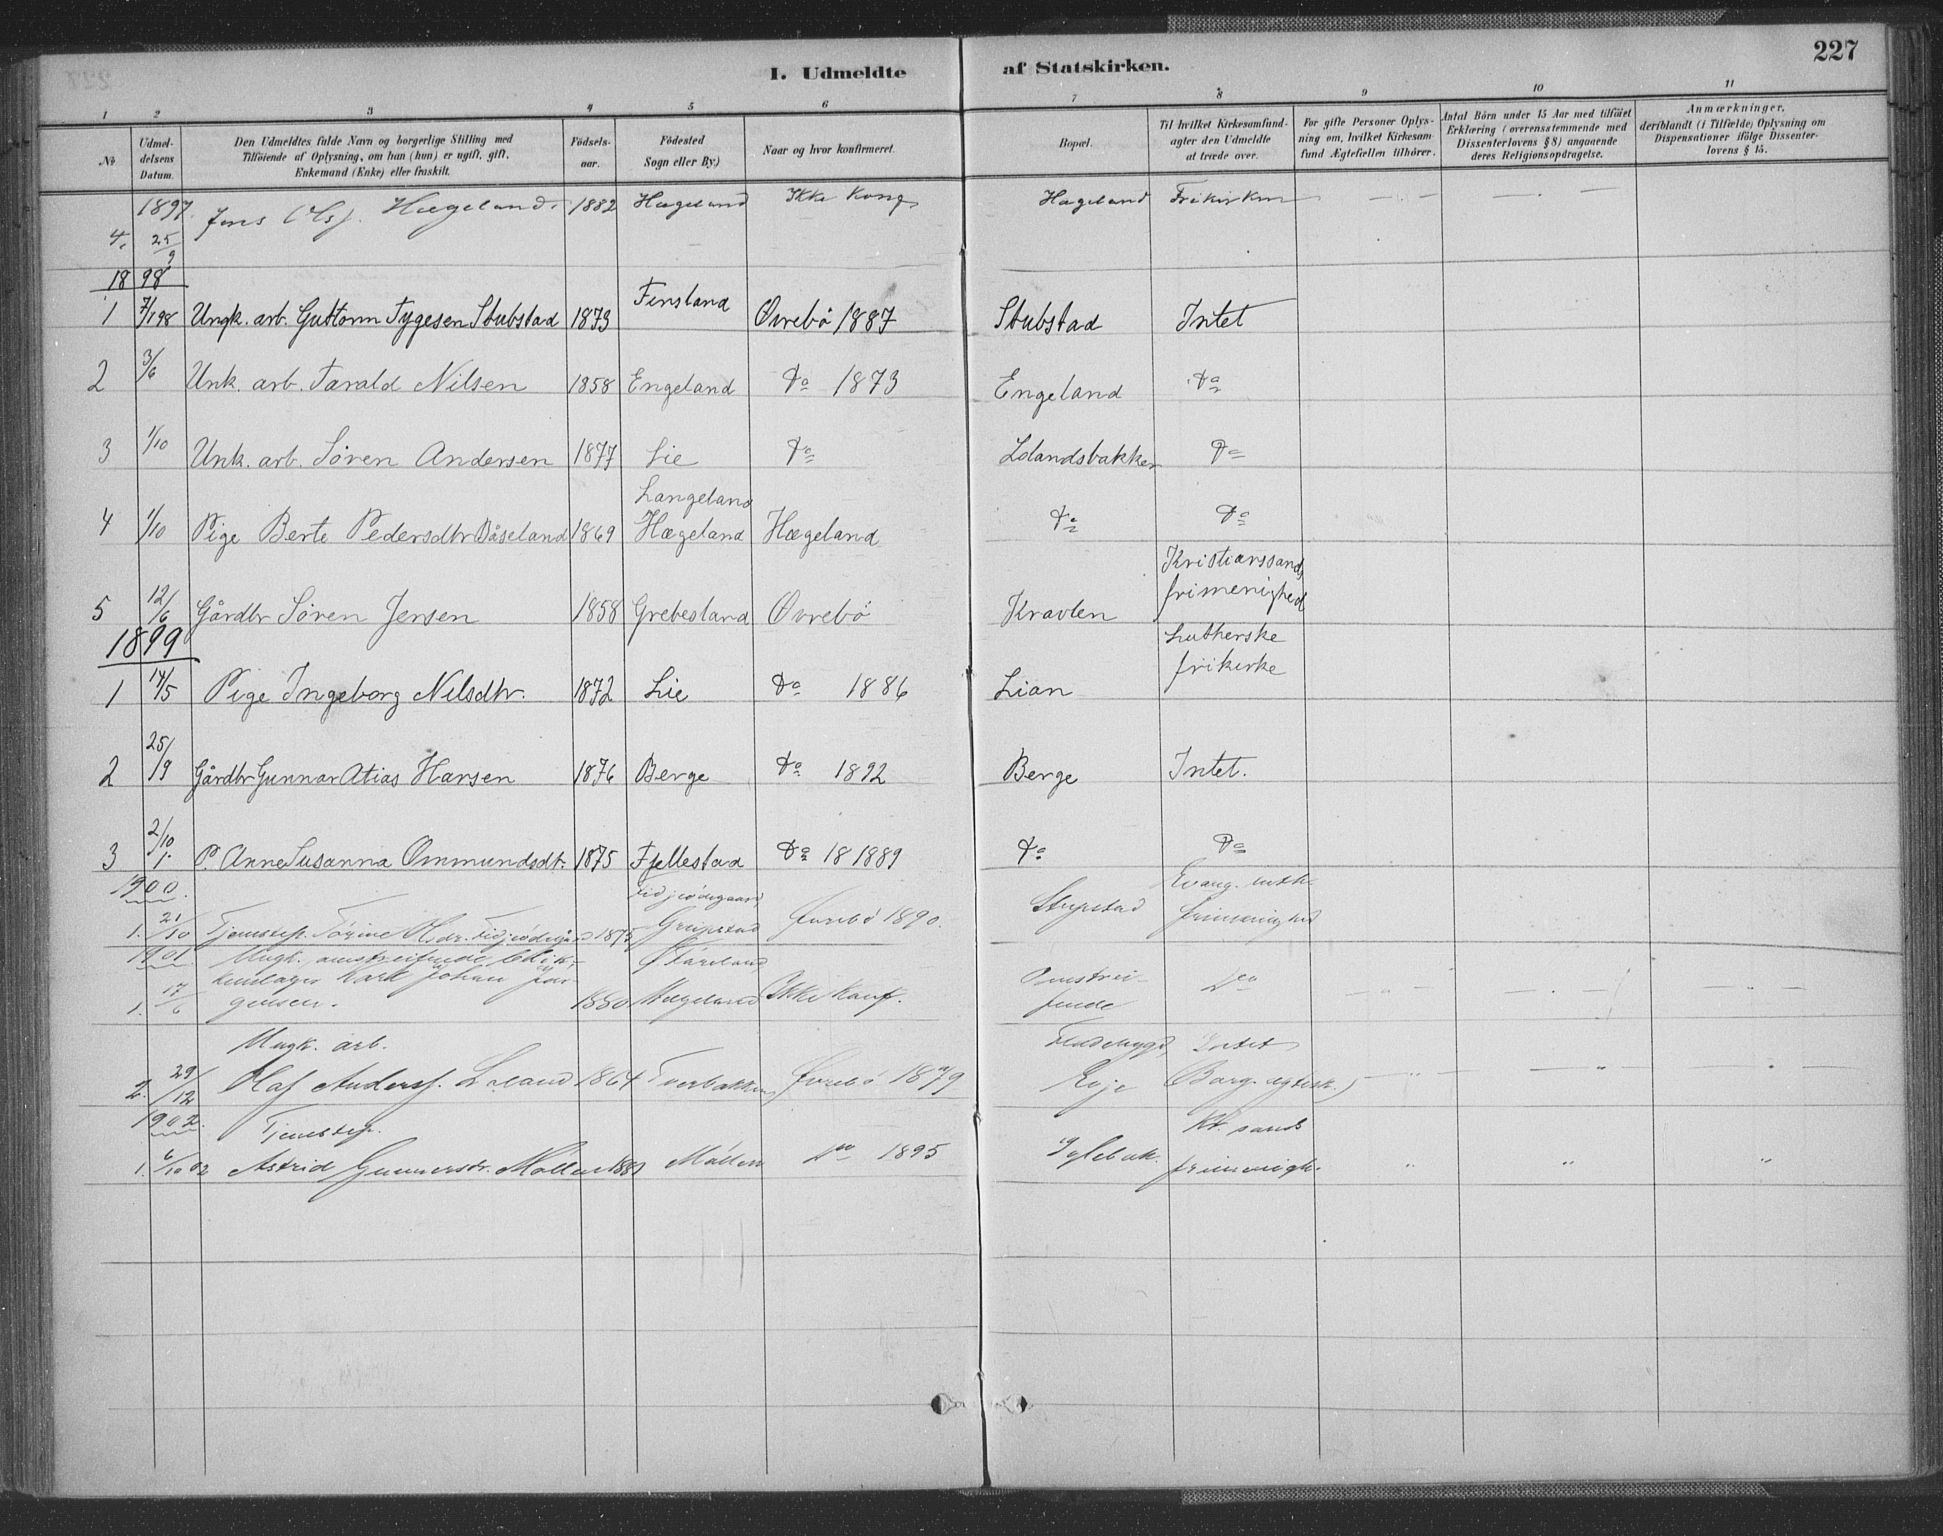 227
I. Udmeldte af Statskirken.
1 2 3 4 5 6 7 8 9 10 11
№
Udmel-
delsens
Datum.
Den Udmeldtes fulde Navn og borgerlige Stilling med
Tilføiende af Oplysning, om han (hun) er ugift, gift,
Enkemand (Enke) eller fraskilt.
Fødsels-
aar.
Fødested
Sogn eller By)
Naar og hvor konfirmeret.
Bopæl.
Til hvilket Kirkesamfund-
agter den Udmeldte
at træde over.
For gifte Personer Oplys-
ning om, hvilket Kirkesam-
fund Ægtefællen tilhører.
Antal Børn under 15 Aar med tilføiet
Erklæring (overensstemmende med
Dissenterlovens § 8) angaaende
deres Religionsopdragelse.
Anmærkninger,
deriblandt (i Tilfælde) Oplysning om
Dispensationer ifølge Dissenter-
lovens § 15.
1897
4. 25/9 Jens Olsf. Hægeland. 1882 Hægeland Ikke Konf Hægeland Frikirken
1898
1 7/1 98 Ungk. arb. Guttorm Tygesen Stubstad 1873 Finsland Øvrebö 1887 Stubstad Intet
2 3/6 Unk. arb. Tarald Nilsen 1858 Engeland Do 1873 Engeland Do
3 1/10 Unk. arb. Sören Andersen 1877 Lie Do Lolandsbakken Do
Langeland
4 1/10 Pige Berte Pedersdtr Båseland 1869 Hægeland Hægeland Do Do
Kristianssands
frimenighed
5 12/6 Gårdbr Sören Jensen 1858 Grebesland Øvrebö Kravlen
1899
Lutherske
frikirke
1 17/5 Pige Ingeborg Nilsdtr. 1872 Lie Do 1886 Lian
2 25/9 Gårdbr Gunnar Atias Hansen 1876 Berge Do 1892 Berge Intet.
3 2/10 P. Anne Susanna Ommundsdt. 1875 Fjellestad Do 18 1889 Do Do
1900.
Evang. luth.
frimenighed
1. 21/10 Tjenestep. Torine Olsdr. 1875 Grupstad Øvrebö 1890. Stupstad
1901
Ungk. omstreifende blik-
kenslager Karl Johan Jør-
gensen.
1. 17/6 1880 Hægeland Ikke konf. Omstrei-
fende Do
Ungk. arb.
2. 29/12 Olaf Andersf. Loland 1864 Tverbakken Øvrebö 1879 Evje Intet
(Borg. ægtesk.)
1902.
Tjenestep.
1. 6/10 02 Astrid Gunnersdr. Møllen Møllen Do 1895 Kr. sands
frimenigh.